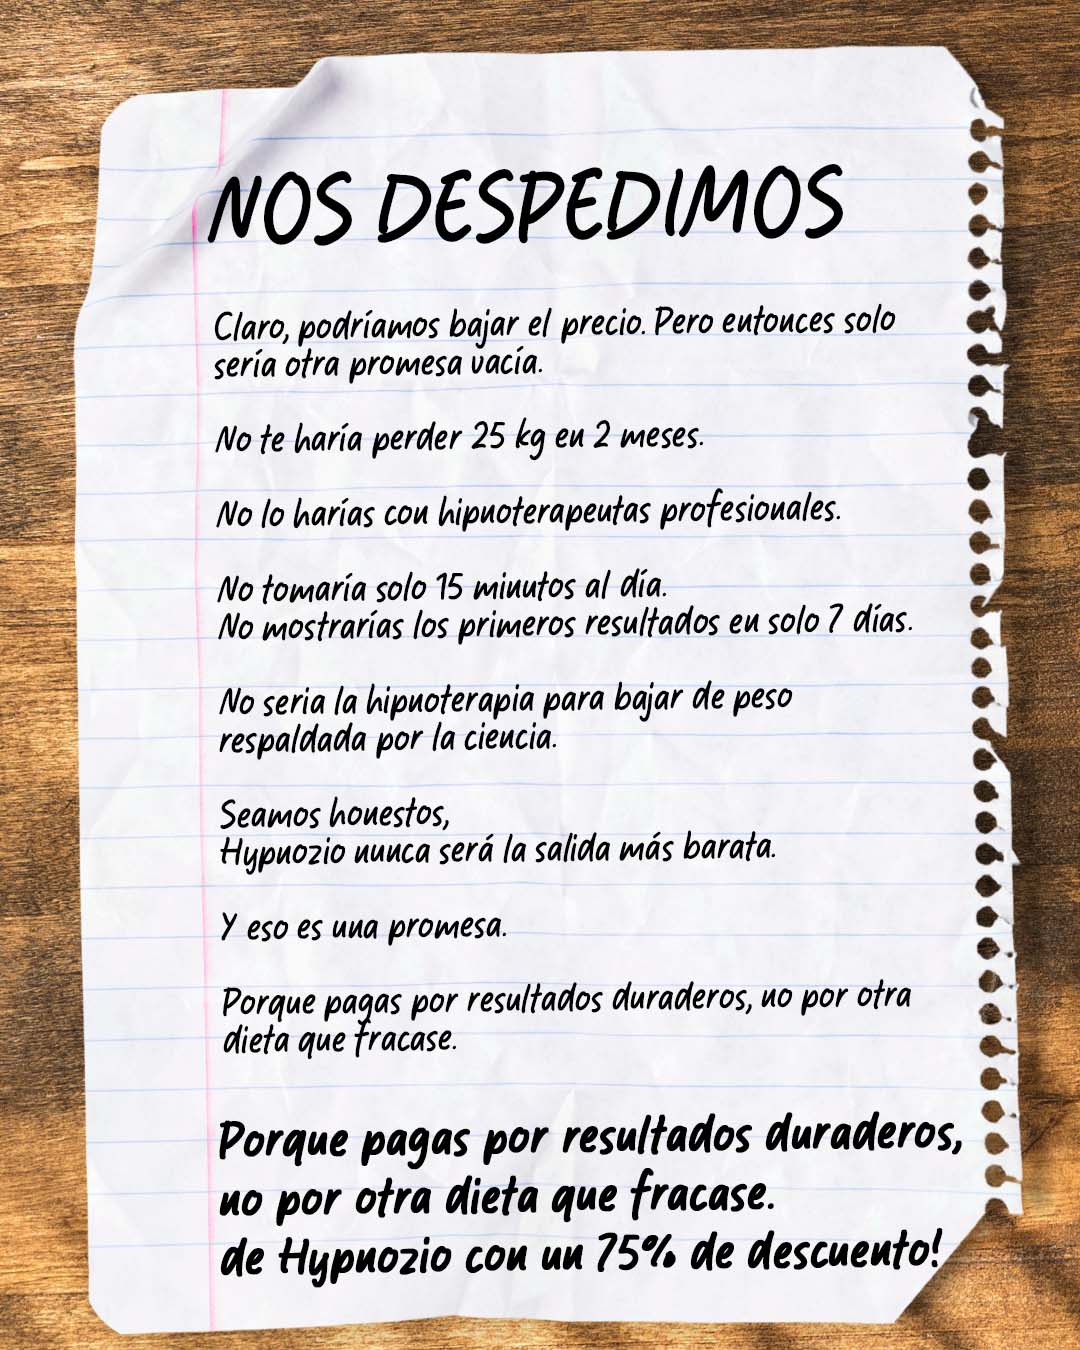 NOS DESPEDIMOS
Claro, podríamos bajar el precio. Pero entonces solo
sería otra promesa vacía.
No te haría perder 25 kg en 2 meses.
No lo harías con hipnoterapeutas profesionales.
No tomaría solo 15 minutos al día.
No mostrarías los primeros resultados en solo 7 días.
No seria la hipnoterapia para bajar de peso
respaldada por la ciencia.
Seamos honestos,
Hypnozio nunca será la salida más barata.
Y eso es una promesa.
Porque pagas por resultados duraderos, no por otra
dieta que fracase.
Porque pagas por resultados duraderos,
no por otra dieta que fracase.
de Hypnozio con un 75% de descuento!